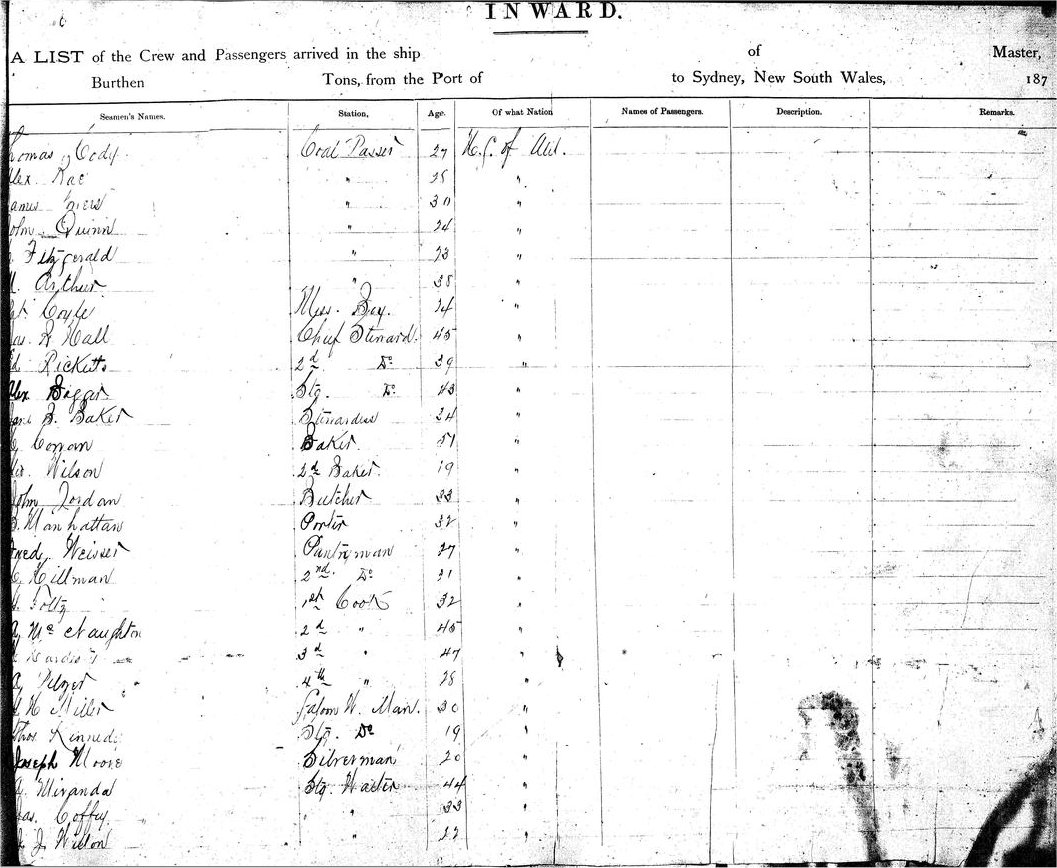 INWARD.
A LIST of the Crew and Passengers arrived in the ship of Master,
Burthen Tons, from the Port of to Sydney, New South Wales, 187
Seamen's Names. Station, Age. Of what Nation Names of Passengers. Description. Remarks.
homas Cody Coal Passer 27 of
lex. Rae " 25 "
ames " 30 "
ohn Quinn " 24 "
Fitzgerald " 23 "
Arthur " 38 "
Coyle Mess. Boy. 24 "
as. Hall Chief Steward. 45 "
d Ricketts 2d Do 29 "
lex Bigger Stg. Do 43 "
B. Baker Stewardess 24 "
Corran Baker. 57 "
Wilson 2d Baker. 19 "
John Jordan Butcher 33 "
Manhattan Porter 32 "
red, Weisser Pantryman 27 "
Hillman 2nd. Do 31 "
Foltz 1st Cook 32 "
Mc Naughton 2d " 45 "
3d " 47 "
Pelzer 4th " 28 "
H Miller Saloon W. Man. 30 "
Thos Kennedy Stg. Do 19 "
Joseph Moore Silverman 20 "
A. Miranda Stg. Waiter 44 "
as. Coffey " " 33 "
J. Wilson " 22 "